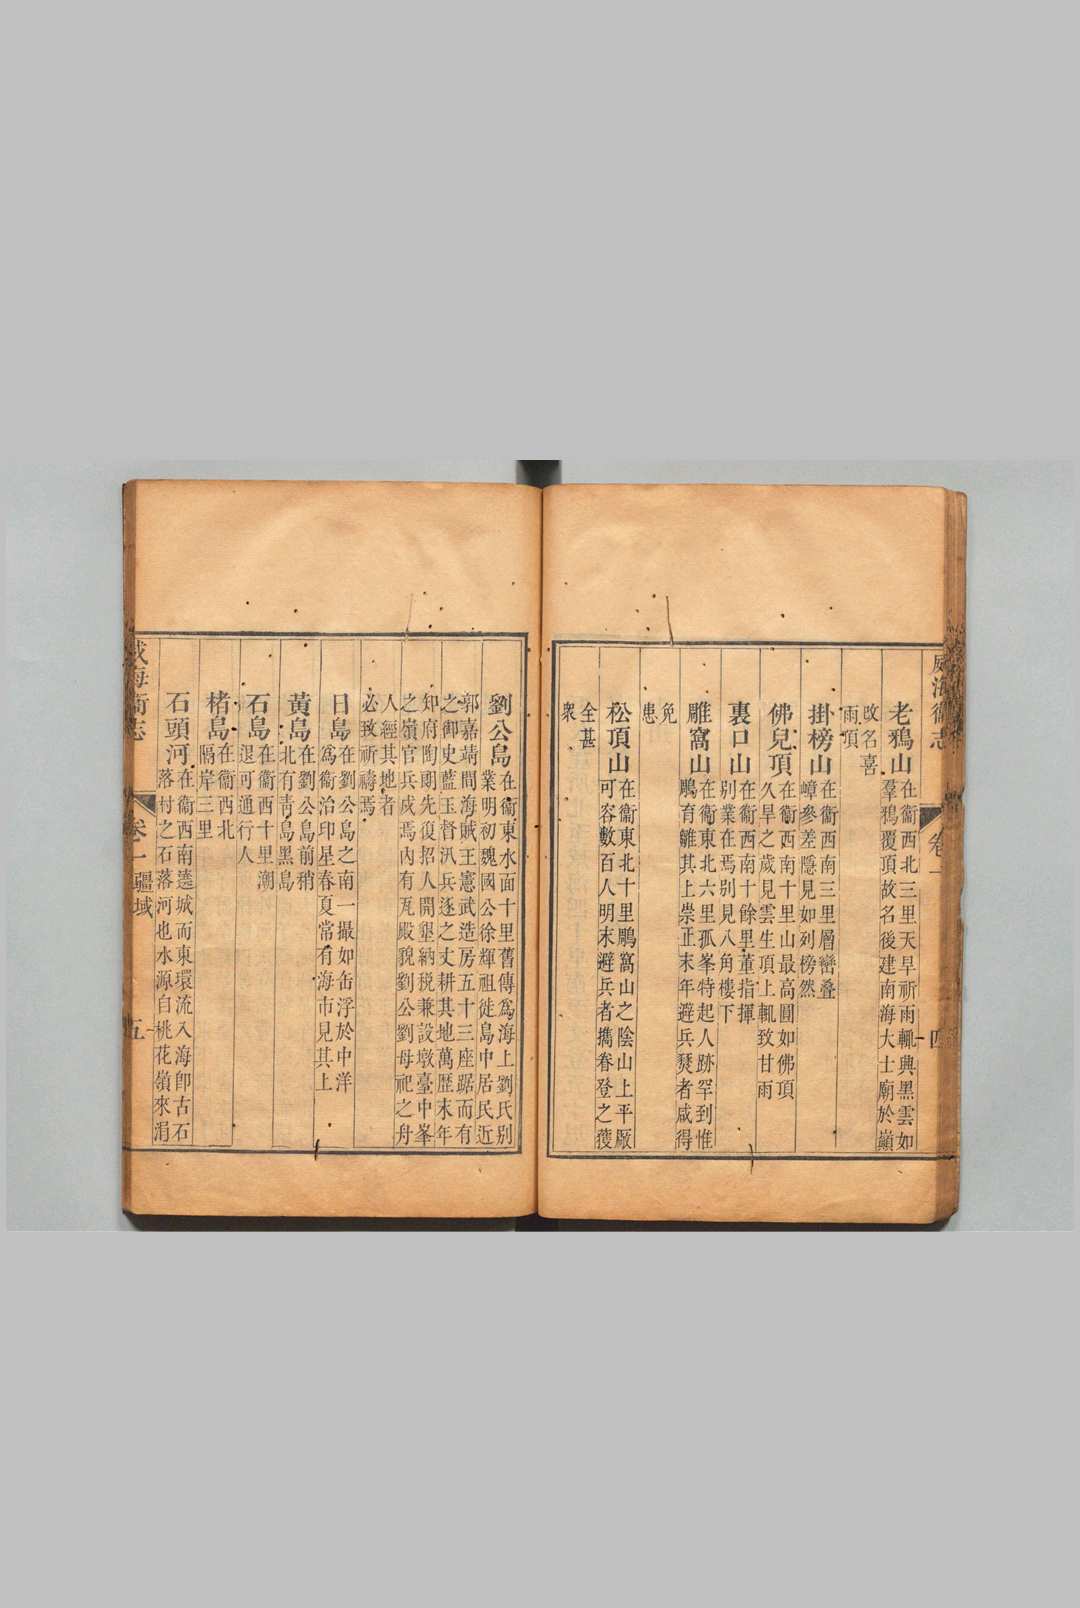 威海衞志
卷一
四
老鴉山
在衞西北三里天旱祈雨輒興黑雲如
羣鴉覆頂故名後建南海大士廟於巔
改名喜
雨頂
掛榜山
在衞西南三里層巒叠
嶂參差隱見如列榜然
佛兒頂
在衞西南十里山最高圓如佛頂
久旱之歲見雲生頂上輒致甘雨
裏口山
在衞西南十餘里董指揮
別業在焉別見八角樓下
雕窩山
在衞東北六里孤峯特起人跡罕到惟
鵰育雛其上崇正末年避兵燹者咸得
免
患
松頂山
在衞東北十里鵰窩山之陰山上平厰
可容數百人明末避兵者攜眷登之獲
全甚
衆
劉公島
在衞東水面十里舊傳爲海上劉氏別
業明初魏國公徐輝祖徙島中居民近
郭嘉靖間海賊王憲武造房五十三座踞而有
之御史藍玉督汛兵逐之丈耕其地萬歷末年
知府陶朗先復招人開墾納稅兼設墩臺中峯
之嶺官兵戍焉內有瓦殿貌劉公劉母祀之舟
人經其地者
必致祈禱焉
日島
在劉公島之南一撮如缶浮於中洋
爲衞治印星春夏常有海市見其上
黃島
在劉公島前稍
北有靑島黑島
石島
在衞西十里潮
退可通行人
楮島
在衞西北
隔岸三里
石頭河
在衞西南遶城而東環流入海卽古石
落村之石落河也水源自桃花嶺來涓
威海衞志
卷一疆域
五